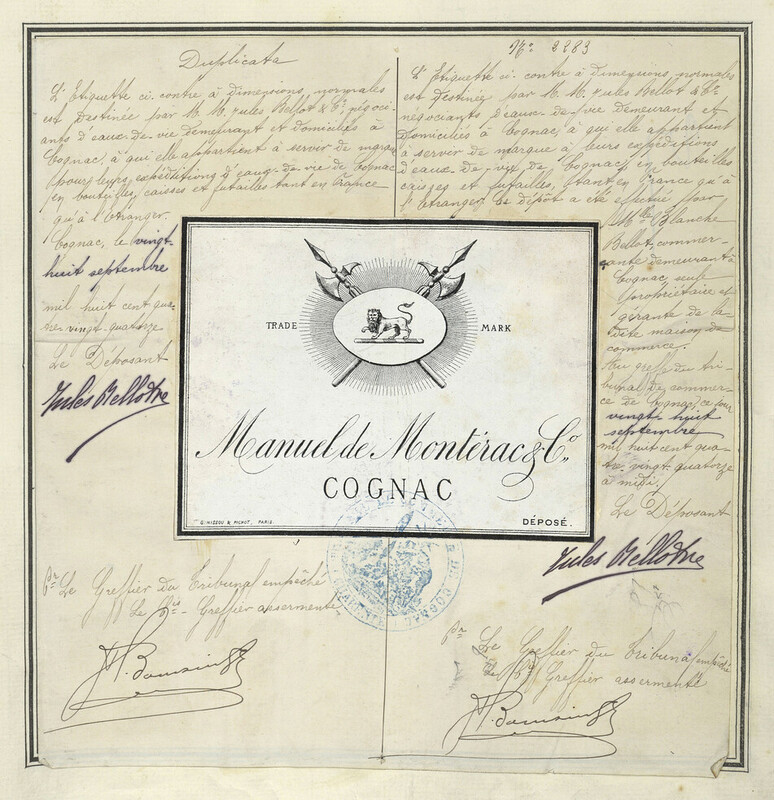 Duplicata
L'Etiquette ci-contre à dimensions normales
est destinée par M. M. Jules Bellot & Cie négoci-
ants d'eaux-de-vie demeurant et domiciliés à
Cognac, à qui elle appartient à servir de marque
pour leurs expéditions d'eaux-de-vie de Cognac
en bouteilles, caisses et futailles tant en France
qu'à l'étranger.
Cognac, le vingt-
huit septembre
mil huit cent qua-
tre-vingt-quatorze
Le Déposant
Jules Bellot
No 2283
L'Etiquette ci-contre à dimensions normales
est destinée par M. M. Jules Bellot & Cie
négociants d'eaux-de-vie demeurant et
domiciliés à Cognac, à qui elle appartient
à servir de marque à leurs expéditions
d'eaux-de-vie de Cognac, en bouteilles
caisses et futailles, tant en France qu'à
l'étranger. Ce dépôt a été effectué par
Mlle Blanche
Bellot, commer-
çante demeurant à
Cognac, seule
propriétaire et
gérante de la
dite maison de
commerce.
Au greffe du tri-
bunal de commer-
ce de Cognac, ce jour
vingt-huit
septembre
mil huit cent qua-
tre-vingt-quatorze
à midi.
Le Déposant
Jules Bellot
TRADE MARK
Manuel de Montérac & Co.
COGNAC
PARIS.
DÉPOSÉ.
Pr Le Greffier du Tribunal empêché
Le Cis-Greffier assermenté
Pr Le Greffier du Tribunal empêché
Le Greffier assermenté